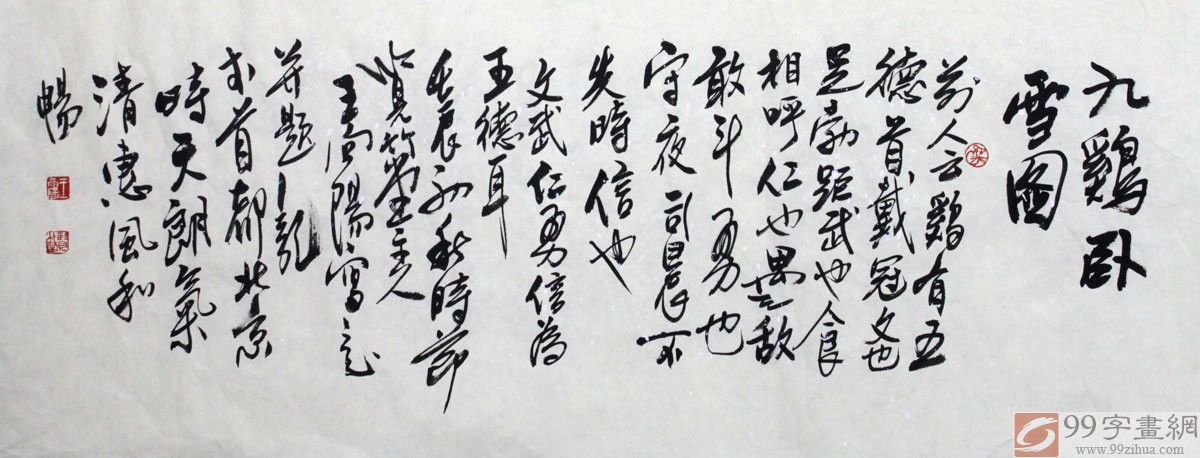 九鷄卧
雪圖
前人云鷄有五
德首戴冠文也
足勇距武也食
相呼仁也遇敵
敢斗勇也
守夜司晨不
失時信也
文武仁勇信為
五德耳
壬辰初秋時節
覽竹堂主人
王向陽寫意
并題
於首都北京
時天朗氣
清惠風和
暢
99字畫網
www.99zihua.com